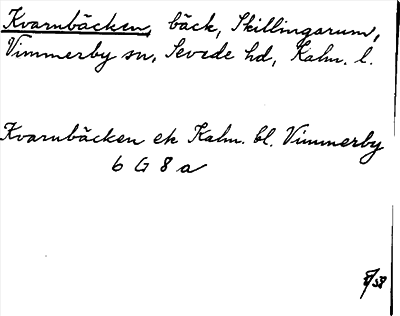 Kvarnbäcken, bäck, Skillingarum,
Vimmerby sn, Sevede hd, Kalm. l.
Kvarnbäcken ek Kalm. bl. Vimmerby
6 G 8 a